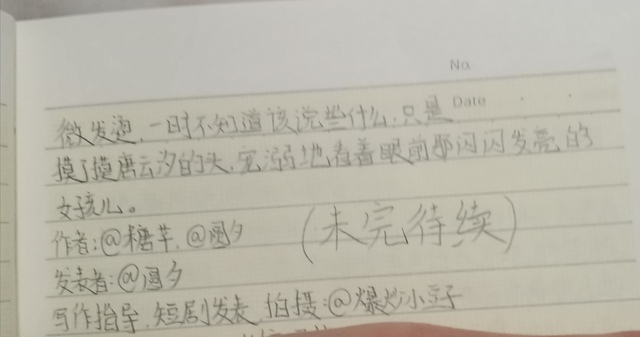 No.
Date
微发烫,一时不知道该说些什么,只是
摸了摸唐云汐的头,宠溺地看着眼前那闪闪发亮的
女孩儿。
(未完待续)
作者:@糖芋,@夕
发表者:@夕
写作指导,短剧发表,拍摄:@爆炒小豆子